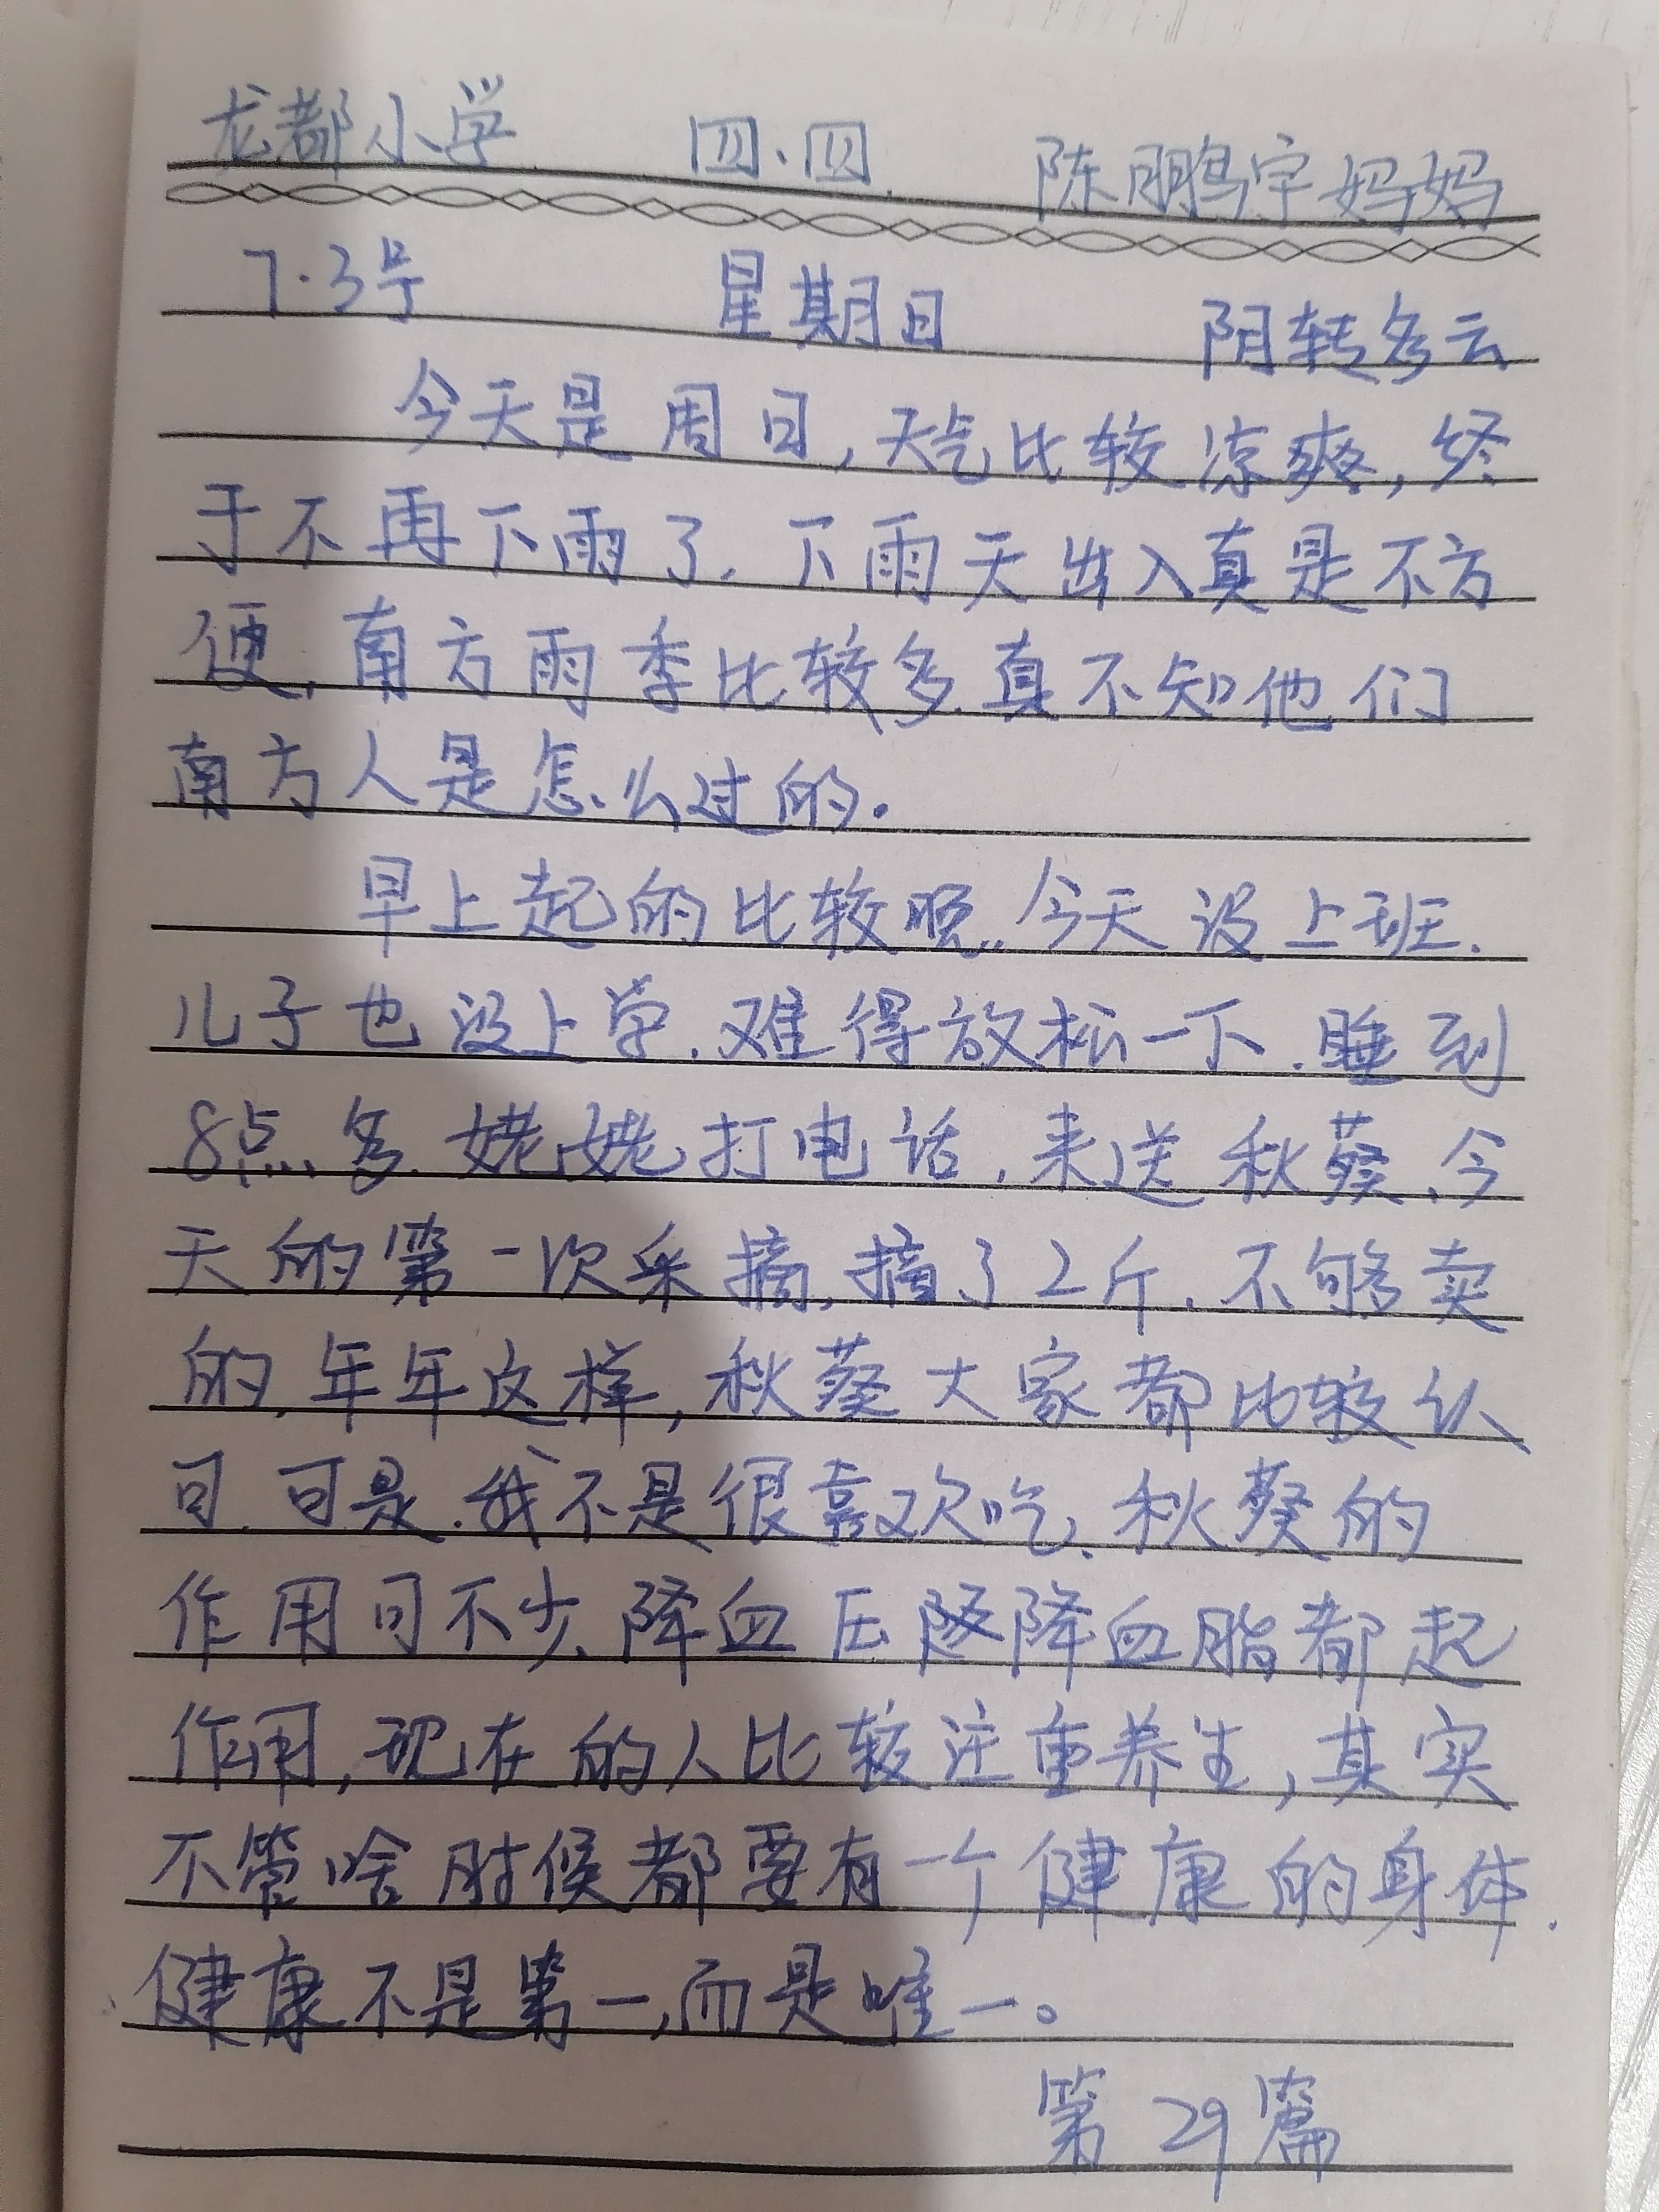 龙都小学 四.四. 陈鹏宇妈妈
7.3号 星期日 阴转多云
今天是周日,天气比较凉爽,终
于不再下雨了.下雨天出入真是不方
便,南方雨季比较多.真不知他们
南方人是怎么过的。
早上起的比较晚..今天没上班.
儿子也没上学.难得放松一下.睡到
8点多.姥姥打电话,来送秋葵、今
天的第一次采摘,摘了2斤.不够卖
的,年年这样,秋葵大家都比较认
可.可是.我不是很喜欢吃.秋葵的
作用可不少.降血压降血脂都起
作用,现在的人比较注重养生,其实
不管啥时候都要有一个健康的身体.
健康不是第一,而是唯一。
第29篇